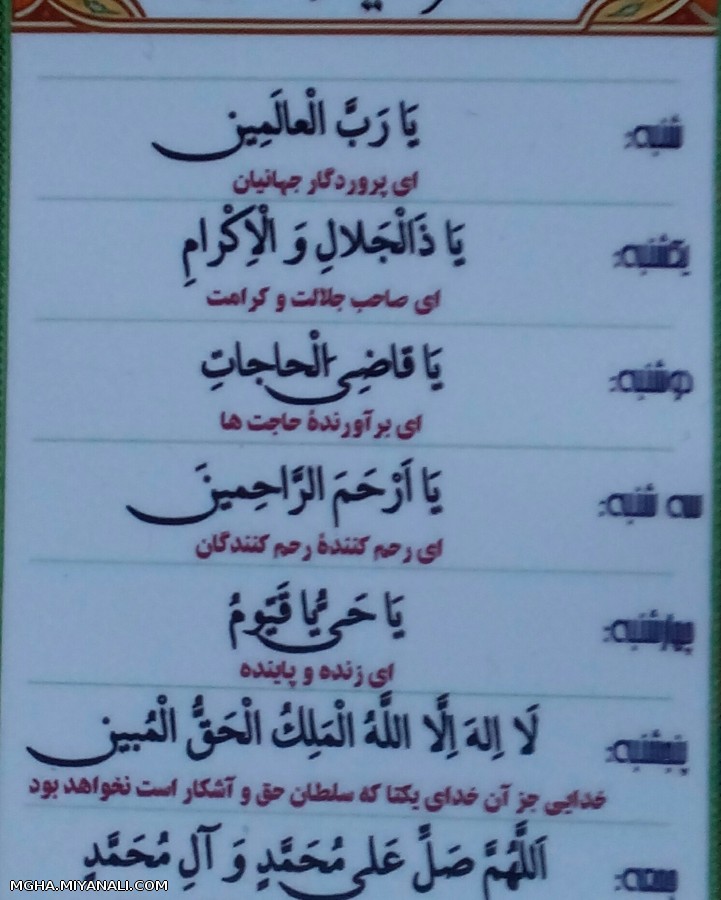 شنبه: یَا رَبَّ الْعالَمِین
ای پروردگار جهانیان
یکشنبه: یَا ذَالْجَلالِ وَ الْاِکْرامِ
ای صاحب جلالت و کرامت
دوشنبه: یَا قاضِیَ الْحاجاتِ
ای برآورندهٔ حاجت ها
سه شنبه: یَا اَرْحَمَ الرَّاحِمینَ
ای رحم کنندهٔ رحم کنندگان
چهارشنبه: یَا حَیُّ یا قَیّومُ
ای زنده و پاینده
پنجشنبه: لَا اِلهَ اِلَّا اللَّهُ الْمَلِكُ الْحَقُّ الْمُبین
خدایی جز آن خدای یکتا که سلطان حق و آشکار است نخواهد بود
جمعه: اَللَّهُمَّ صَلِّ عَلی مُحَمَّدٍ وَ آلِ مُحَمَّدٍ
MGHA.MIYANALI.COM